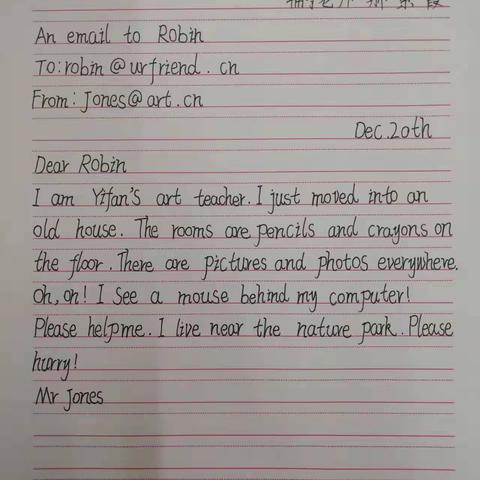 An email to Robin
To:robin@urfriend.cn
From:Jones@art.cn
Dec.20th
Dear Robin
I am Yifan's art teacher.I just moved into an
old house. The rooms are pencils and crayons on
the floor.There are pictures and photos everywhere.
Oh,oh! I see a mouse behind my computer!
Please helpme. I live near the nature park.Please
hurry!
Mr Jones